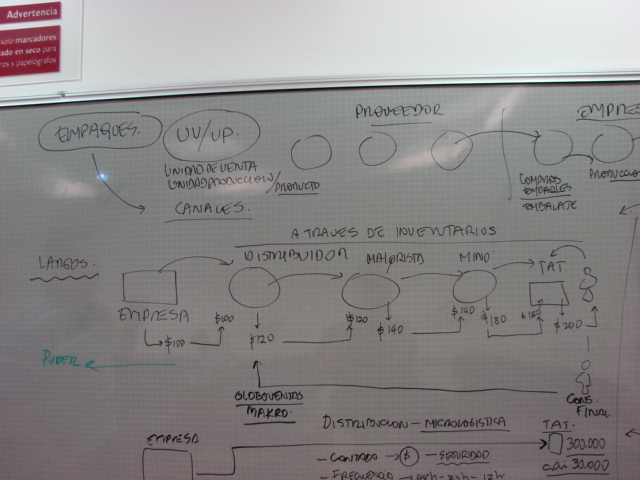 Advertencia
solo marcadores
ado en seco para
ros y papelógrafos
PROVEEDOR
EMPRES
EMPAQUES.
UV/UP.
UNIDAD DE VENTA
UNIDAD PRODUCCION/PRODUCTO
COMPRAS
EMPAQUES
EMBALAJE
PRODUCCION
CANALES.
A TRAVES DE INVENTARIOS
LARGOS.
DISTRIBUIDOR
MAYORISTA
MINO
TAT
EMPRESA
$100
$100
$120
$120
$140
$140
$180
$180
$200
PODER
GLOBOVENTAS
MAKRO.
CONS.
FINAL
DISTRIBUCION - MICROLOGISTICA
TAT.
EMPRESA
300.000
30.000
- CONTADO → $ - SEGURIDAD
- FRECUENCIA → 48h - 24h - 12h